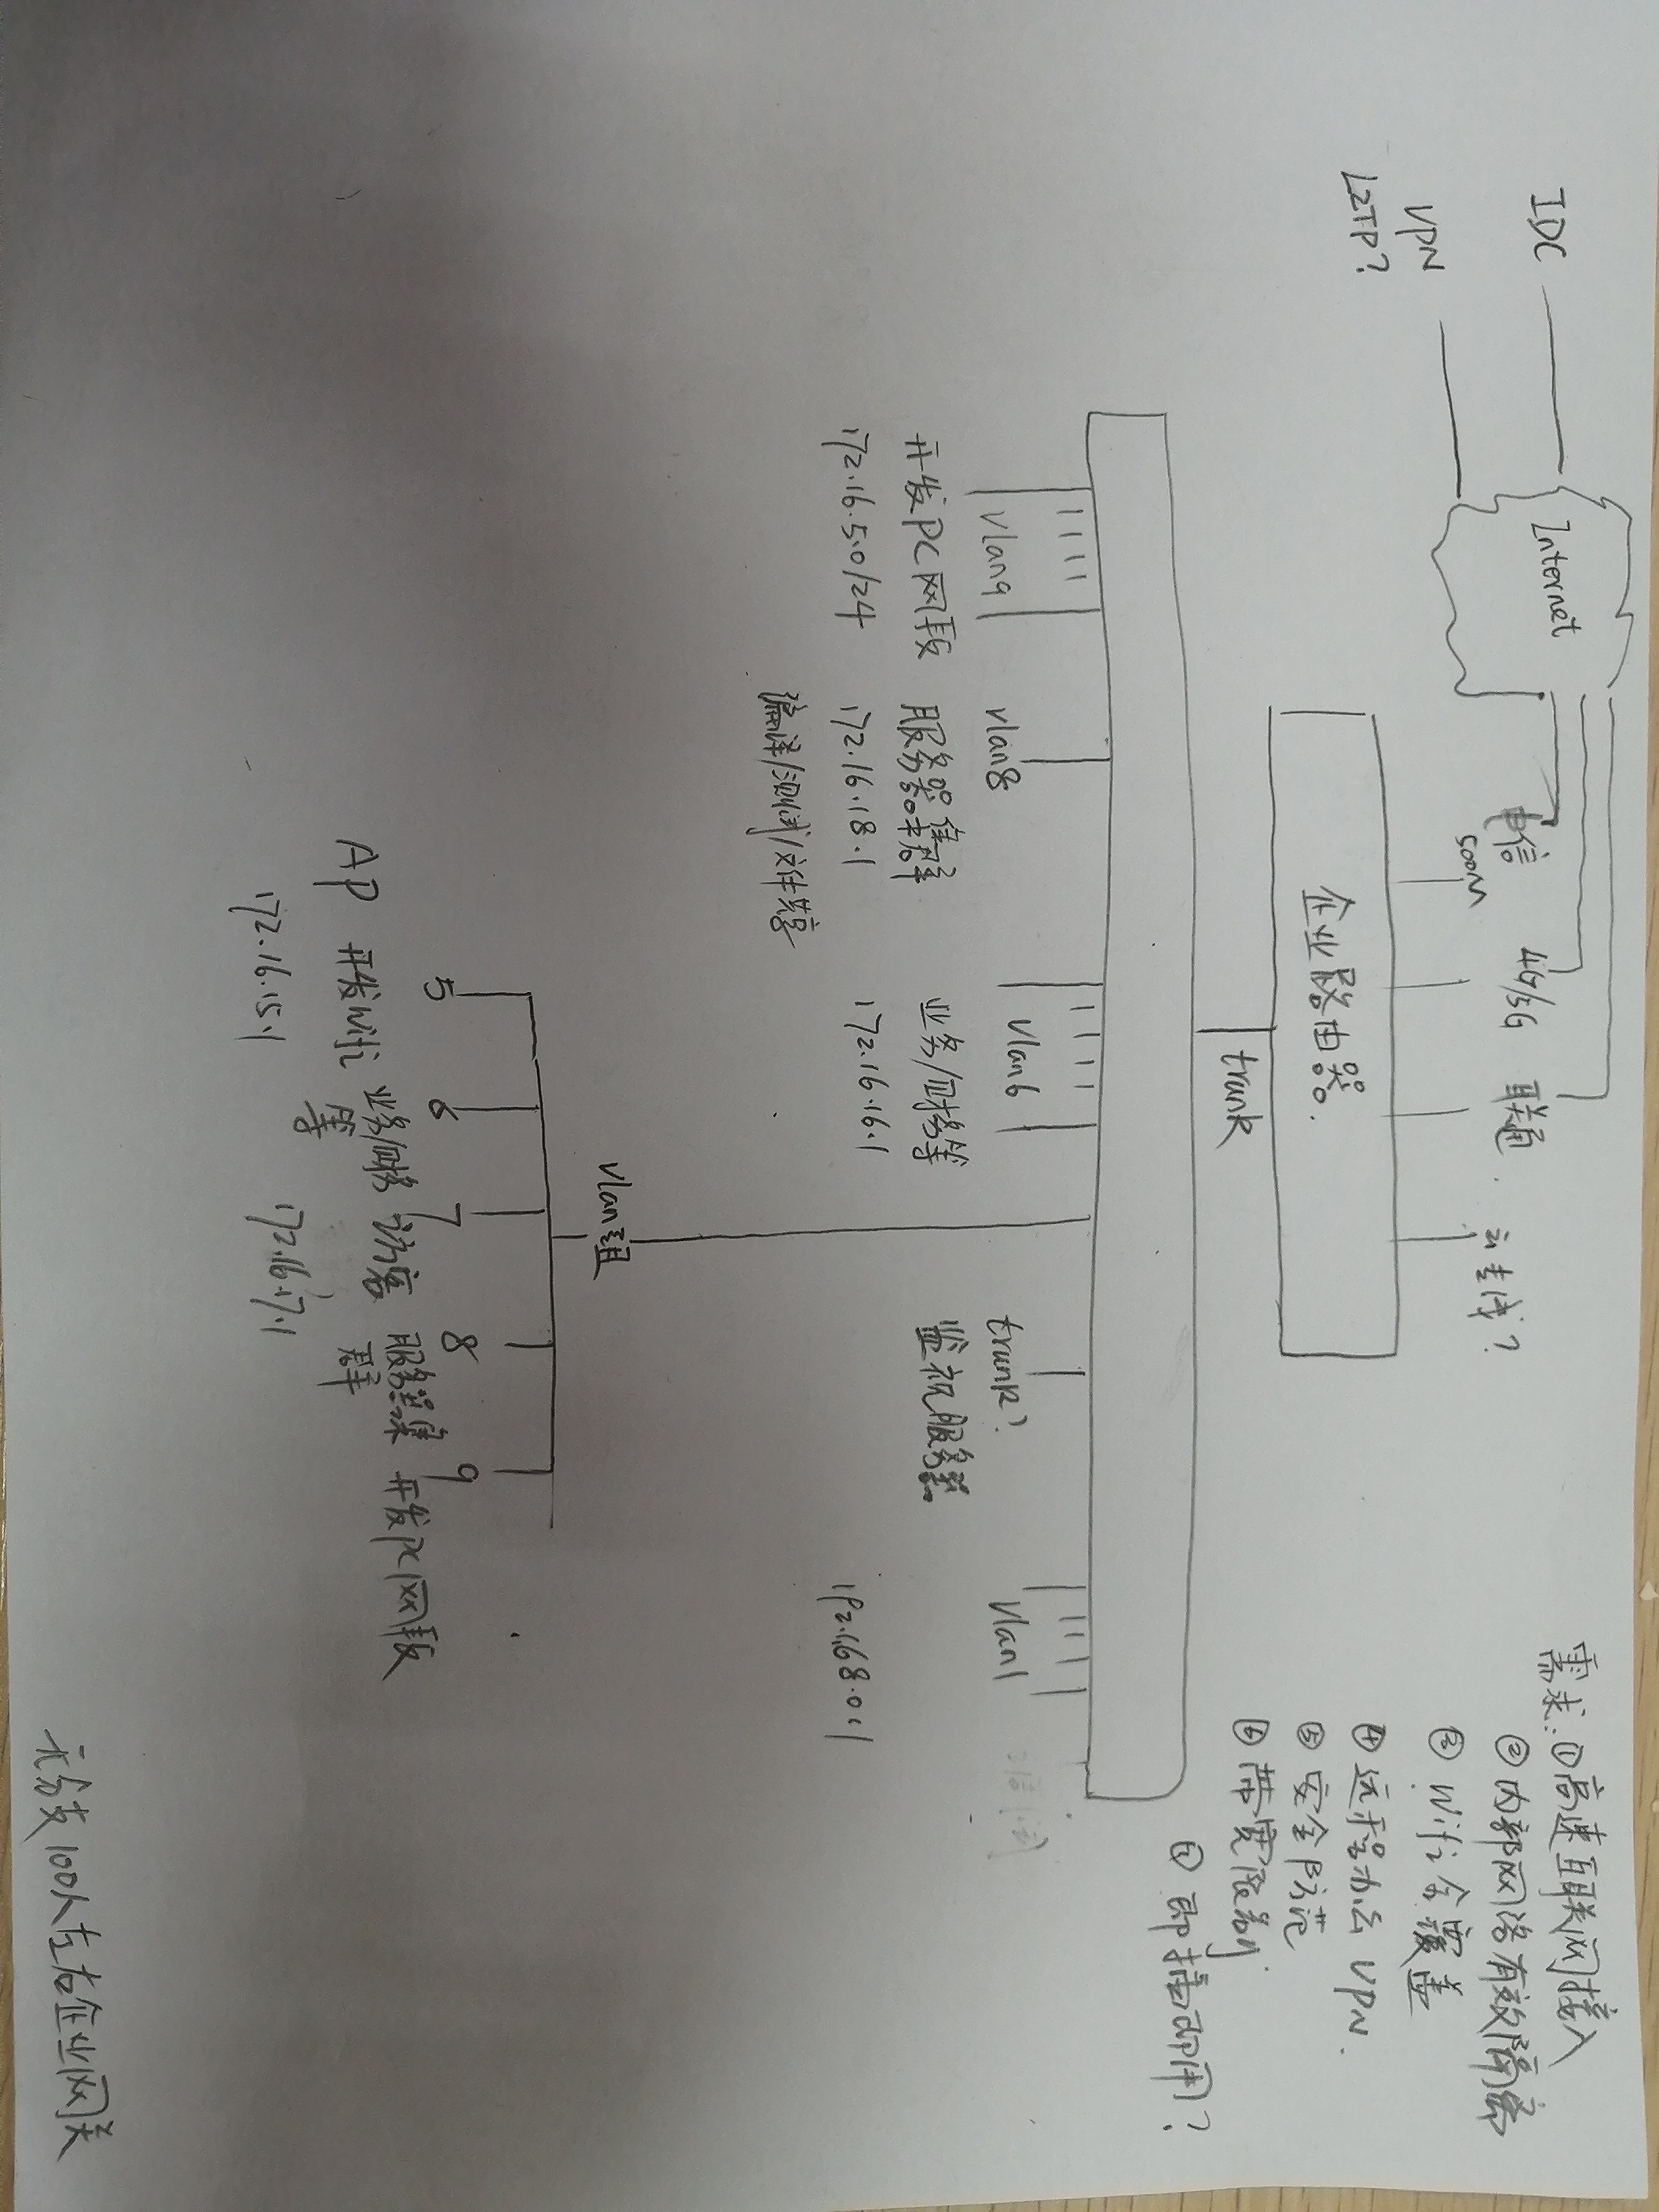 IDC
Internet
VPN
L2TP?
电信
500M
4G/5G
联通
云专线?
需求:①高速互联网接入
②内部网络有效隔离
③Wifi全覆盖
④远程办公 VPN.
⑤安全防范
⑥带宽限制
⑦即插即用?
企业路由器.
trunk
vlan9
开发PC网段
172.16.5.0/24
vlan8
服务器集群
172.16.18.1
编译/测试/文件共享
vlan6
业务/财务等
172.16.16.1
trunk?
监视服务器
vlan1
192.168.0.1
vlan组
5
6
7
8
9
AP
开发Wifi
172.16.15.1
业务/财务
等
访客
172.16.17.1
服务器集
群
开发PC网段
无分支100人左右企业网关